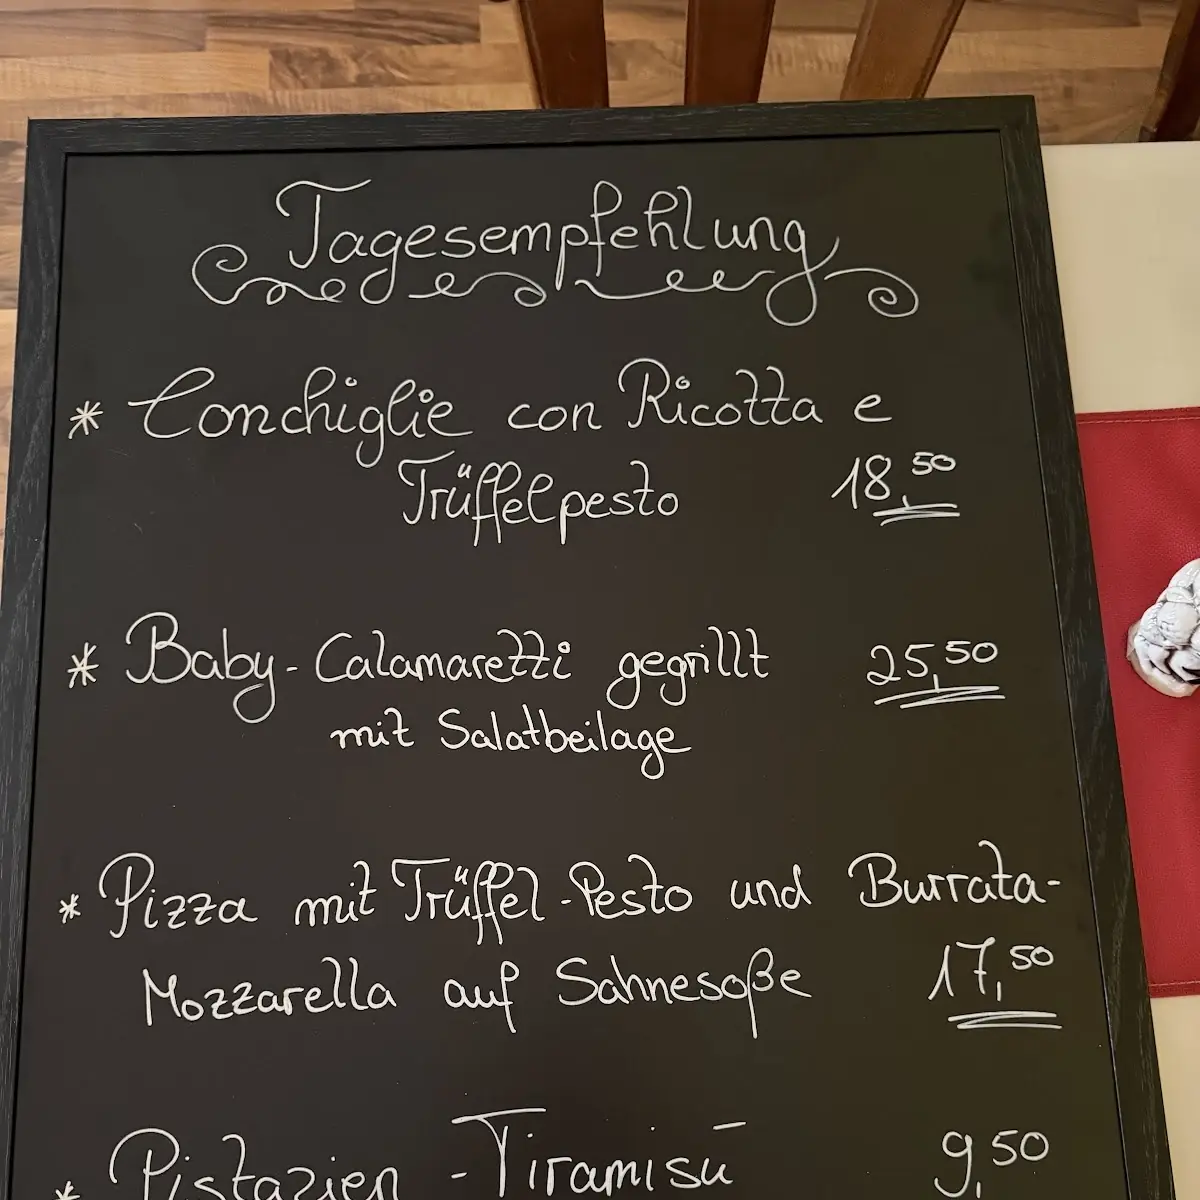 Tagesempfehlung
* Conchiglie con Ricotta e
Trüffelpesto 18,50
* Baby-Calamaretti gegrillt 25,50
mit Salatbeilage
* Pizza mit Trüffel-Pesto und Burrata-
Mozzarella auf Sahnesoße 17,50
* Pistazien-Tiramisū 9,50